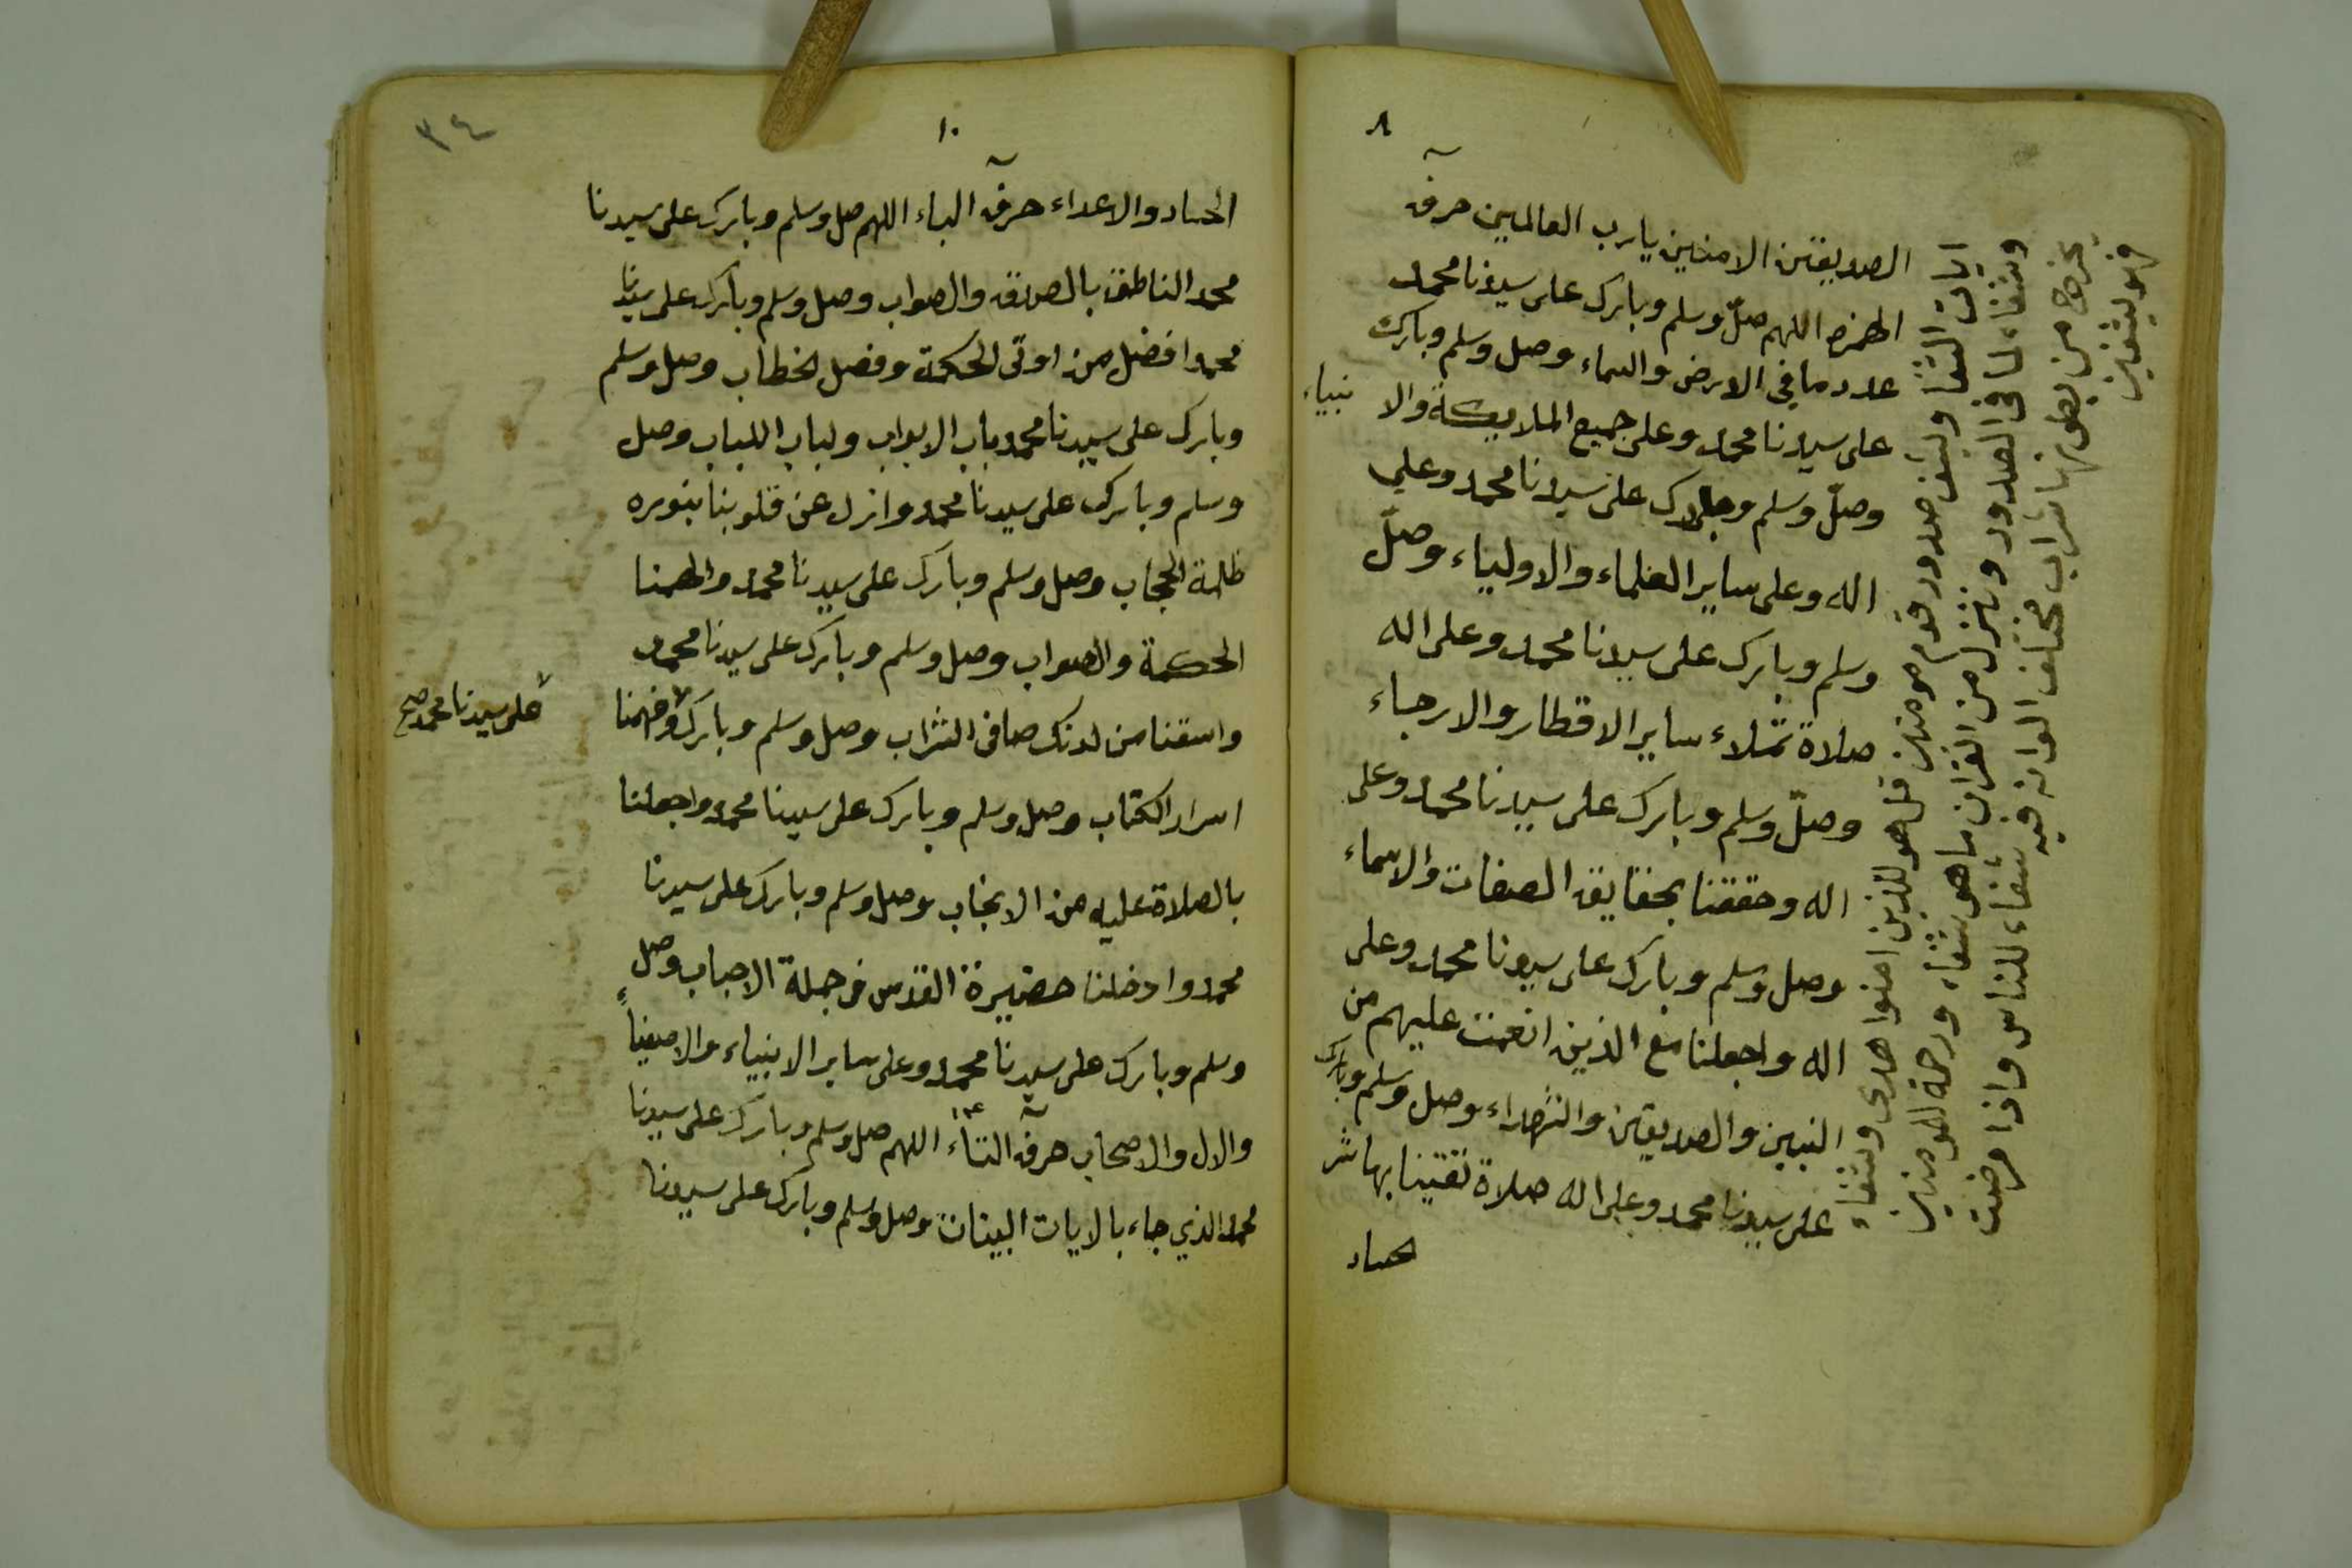 ٨
الصديقين الامنين يارب العالمين حرف
الهمزه اللهم صلّ وسلم وبارك على سيدنا محمد
عدد ما في الارض والسماء وصل وسلم وبارك
على سيدنا محمد وعلى جميع الملايكة والا نبياء
وصلّ وسلم وبارك على سيدنا محمد وعلي
اله وعلى ساير العلماء والاولياء وصلّ
وسلم وبارك على سيدنا محمد وعلى اله
صلاة تملاء ساير الاقطار والارجاء
وصلّ وسلم وبارك على سيدنا محمد وعلى
اله وحققنا بحقايق الصفات والاسماء
وصل وسلم وبارك على سيدنا محمد وعلى
اله واجعلنا مع الذين انعمت عليهم من
النبين والصديقين والشهداء وصل وسلم وبارك
على سيدنا محمد وعلى اله صلاة تقينا بها شر
الحساد
ايات الشفا ويشف صدور قوم مومنين قل هو للذين امنوا هدى وشفاء
وشفاء لما في الصدور وننزل من القران ما هو شفاء ورحمة للمومنين
يخرج من بطونها شراب مختلف الوانه فيه شفاء للناس واذا مرضت
فهو يشفين
١٠
٣٤
الحساد والاعداء حرف الباء اللهم صل وسلم وبارك على سيدنا
محمد الناطق بالصدق والصواب وصل وسلم وبارك على سيدنا
محمد افضل من اوتى الحكمة وفصل الخطاب وصل وسلم
وبارك على سيدنا محمد باب الابواب ولباب اللباب وصل
وسلم وبارك على سيدنا محمد وازل عن قلوبنا بنوره
ظلمة الحجاب وصل وسلم وبارك على سيدنا محمد والهمنا
الحكمة والصواب وصل وسلم وبارك على سيدنا محمد
واسقنا من لدنك صافى الشراب وصل وسلم وبارك وفهمنا
على سيدنا محمد صح
اسرار الكتاب وصل وسلم وبارك على سيدنا محمد واجعلنا
بالصلاة عليه من الانجاب وصل وسلم وبارك على سيدنا
محمد وادخلنا حضيرة القدس في جملة الاحباب وصل
وسلم وبارك على سيدنا محمد وعلى ساير الانبياء والاصفياء
والال والاصحاب حرف التاء اللهم صل وسلم وبارك على سيدنا
محمد الذي جاء بالايات البينات وصل وسلم وبارك على سيدنا